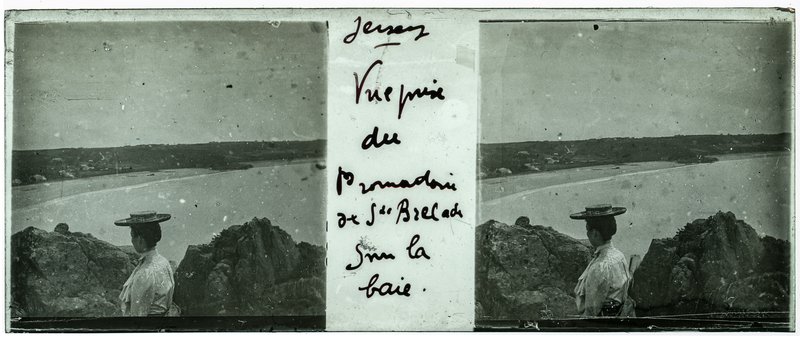 Jersey
Vue prise
du
Promadoire
de Ste Brelade
sur la
baie.